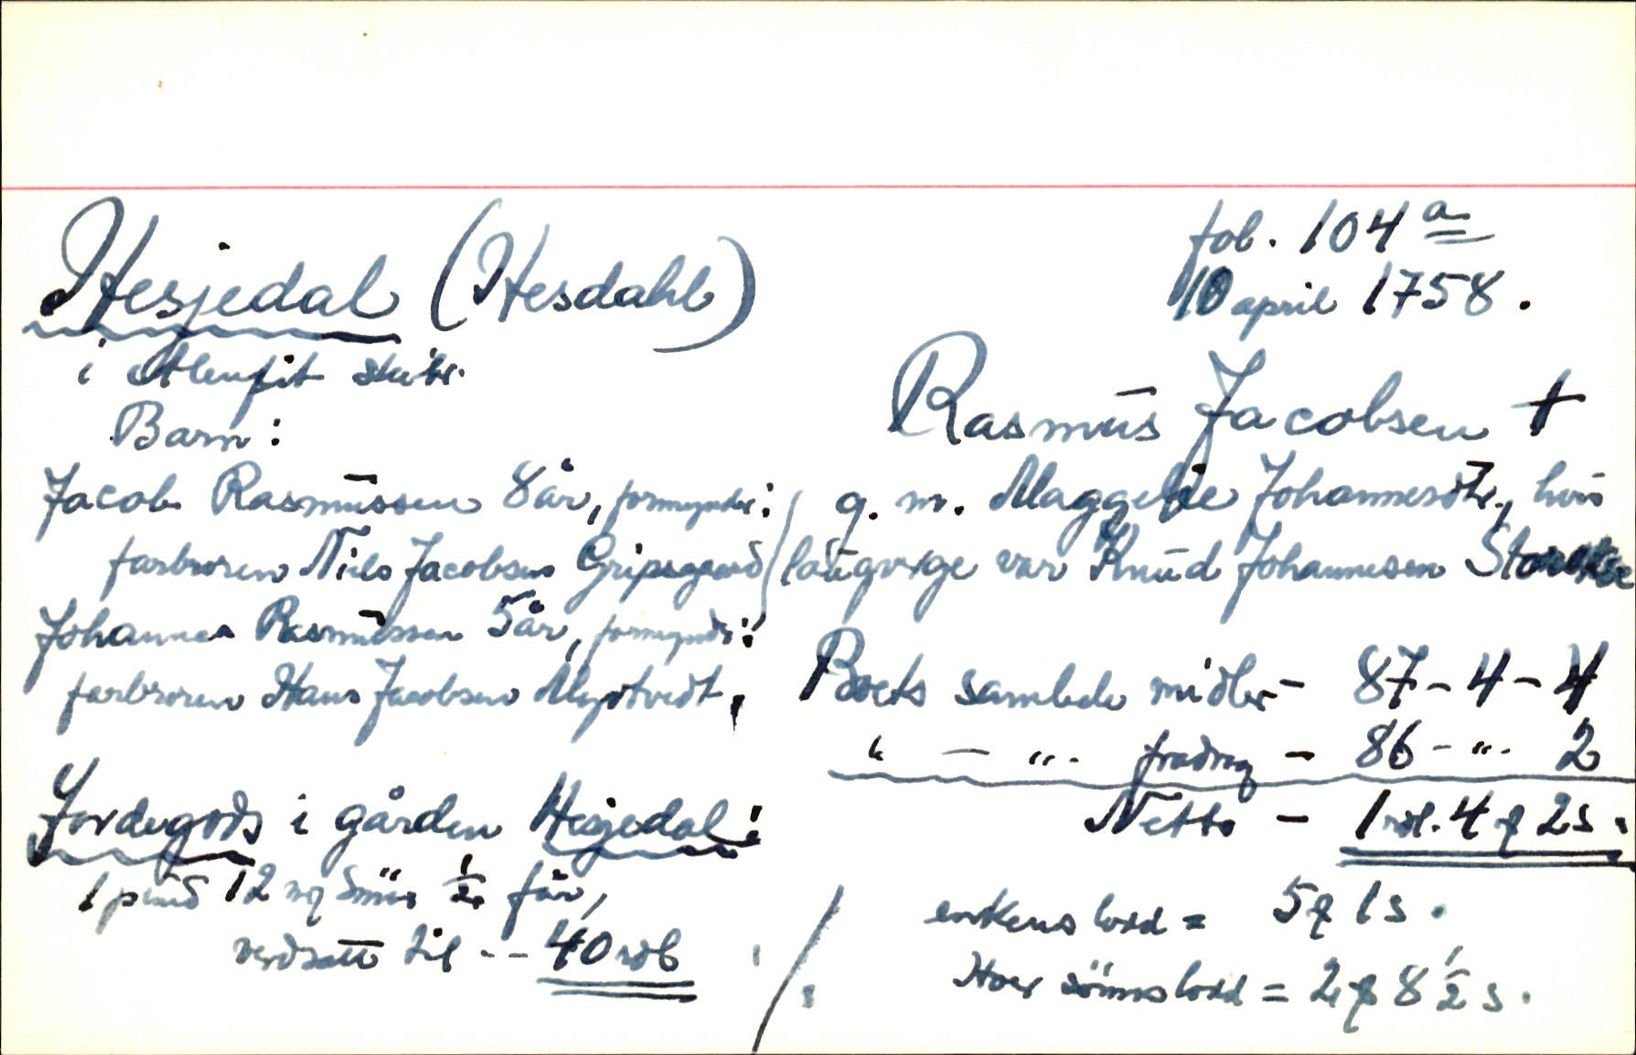 Hesjedal (Hesdahl)
i Alenfit skibr.
Barn:
Jacob Rasmussen 8 år, formynder:
farbroren Niels Jacobsen Gripsgaard
Johannes Rasmussen 5 år, formyndr:
farbroren Hans Jacobsen Mydtvedt,
Jordegods i gården Hesjedal:
1 pund 12 mg smür 1/2 får,
verdsatt til -- 40 rdl
fol. 104 a
10 april 1758.
Rasmus Jacobsen †
g. m. Maggelie Johannesdtr., hvis
laugverge var Knud Johannesen
Boets samlede midler - 87-4-4
" - " - fradrag - 86 - " - 2
Netto - 1 rdl. 4 ƒ 2 s.
enkens lodd = 5 ƒ 1 s.
Hver sönns lodd = 2 ƒ 8 1/2 s.